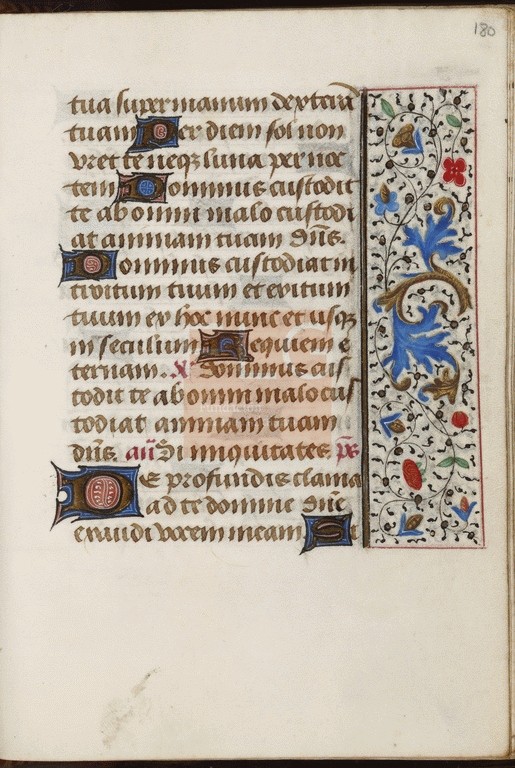 180
tua super manum dexterā
tuam Per diem sol non
vret te neqꝫ luna per noc
tem Dominus custodit
te ab omni malo custodi
at animam tuam dn̄s.
Dominus custodiat in
troitum tuum et exitum
tuum ex hoc nunc et usqꝫ
in seculum Requiem e
ternam. Dominus cus
todit te ab omni malo cus
todiat animam tuam
dn̄s. an̄ Si iniquitates p̄s
De profundis clama
ad te domine dn̄e
exaudi vocem meam